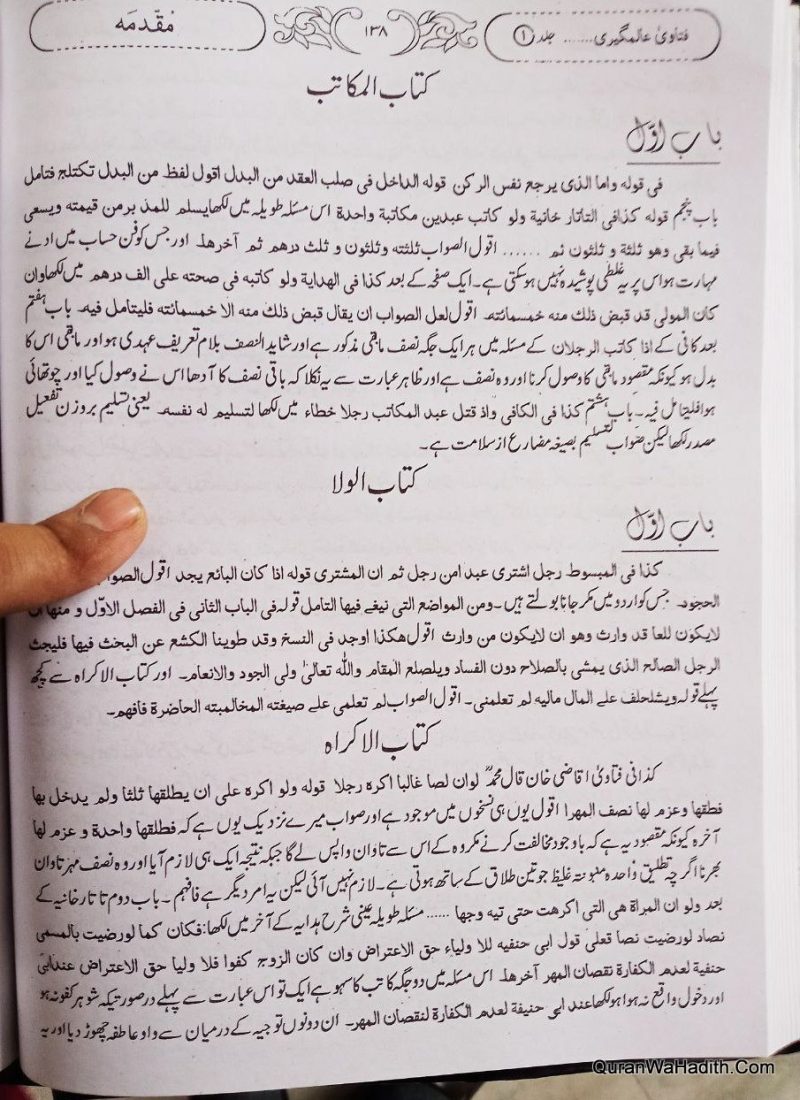 فتاویٰ عالمگیری ...... جلد ① ۱۳۸ مُقدّمَہ
کتاب المکاتب
باب اوّل
فی قولہ واما الذی یرجع نفس الرکن قولہ الداخل فی صلب العقد من البدل اقول لفظ من البدل تکتلج فتامل
باب پنجم قولہ کذافی التاتار خانیة ولو کاتب عبدین مکاتبة واحدة اس مسئلہ طویلہ میں لکھایسلم للمذ برمن قیمتہ ویسعی
فیما بقی وھو ثلثة و ثلثون ثم ...... اقول الصواب ثلثتہ وثلثون و ثلث درھم ثم آخرھط اور جس کو فن حساب میں ادنے
مہارت ہو اس پر یہ غلطی پوشیدہ نہیں ہوسکتی ہے۔ ایک صفحہ کے بعد کذا فی الھدایة ولو کاتبہ فی صحتہ علی الف درھم میں لکھاوان
کان المولی قد قبض ذلك منہ خمسمائتہ۔ اقول لعل الصواب ان یقال قبض ذلك منہ الا خمسمائتہ فلیتامل فیہ۔ باب ہفتم
بعد کافی کے اذا کاتب الرجلان کے مسئلہ میں ہر ایک جگہ نصف ماقی مذکور ہے اور شاید النصف بلام تعریف عہدی ہو اور ماقی اس کا
بدل ہو کیونکہ مقصود ماقی کا وصول کرنا اور وہ نصف ہے اور ظاہر عبارت سے یہ نکلا کہ باقی نصف کا آدھا اس نے وصول کیا اور چوتھائی
ہوا فلیتامل فیہ۔ باب ہشتم کذا فی الکافی واذ قتل عبد المکاتب رجلا خطاء میں لکھا لتسلیم لہ نفسہ۔ یعنی تسلیم بروزن تفعیل
مصدر لکھا لیکن صواب لتسلیم بصیغہ مضارع از سلامت ہے۔
کتاب الولا
باب اوّل
کذا فی المبسوط رجل اشتری عبد امن رجل ثم ان المشتری قولہ اذا کان البائع یجد اقول الصواب
الحجود۔ جس کو اردو میں مکر جانا بولتے ہیں۔ ومن المواضع التی نیغے فیھا التامل قولہ فی الباب الثانی فی الفصل الاوّل و منھا ان
لایکون للعا قد وارث وھو ان لایکون من وارث اقول ھکذا اوجد فی النسخ وقد طوینا الکشع عن البخث فیھا فلیجث
الرجل الصالح الذی یمشی بالصلاح دون الفساد ویلصلع المقام واللّٰہ تعالیٰ ولی الجود والانعام۔ اور کتاب الاکراہ سے کچھ
پہلے قولہ ویشلحلف علے المال مالیہ لم تعلمنی۔ اقول الصواب لم تعلمی علے صیغتہ المخالمبتہ الحاضرة فافھم۔
کتاب الاکراہ
کذافی فتاویٰ اقاضی خان قال محمدؒ لوان لصا غالبا اکرہ رجلا قولہ ولو اکرہ علی ان یطلقھا ثلثا ولم یدخل بھا
فطقھا وعزم لھا نصف المھرا اقول یوں ہی نسخوں میں موجود ہے اور صواب میرے نزدیک یوں ہے کہ فطلقھا واحدة و عزم لھا
آخرہ کیونکہ مقصود یہ ہے کہ باوجود مخالفت کرنے مکروہ کے اس سے تاوان واپس لے گا جبکہ نتیجہ ایک ہی لازم آیا اور وہ نصف مہر تاوان
بھرنا اگرچہ تطلیق واحدہ منبونتہ غلیظ جوتین طلاق کے ساتھ ہوتی ہے۔ لازم نہیں آئی لیکن یہ امر دیگر ہے فافہم۔ باب دوم تاتارخانیہ کے
بعد ولو ان المراة ھی التی اکرھت حتی تیہ وجھا ...... مسئلہ طویلہ عینی شرح ہدایہ کے آخر میں لکھا: فکان کما لورضیت بالمسمی
نصاد لورضیت نصا فعلی قول ابی حنفیہ للا ولیاء حق الاعتراض وان کان الزوج کفوا فلا ولیا حق الاعتراض عندابی
حنفیة لعدم الکفارة نقصان المھر آخرھط اس مسئلہ میں دو جگہ کاتب کا سہو ہے ایک تو اس عبارت سے پہلے در صورتیکہ شوہر کفو نہ ہو
اور دخول واقع نہ ہوا ہو لکھا عند ابی حنیفة لعدم الکفارة لنقصان المھر۔ ان دونوں توجیہ کے درمیان سے واو عاطفہ چھوڑ دیا اور یہ
QuranWaHadith.Com